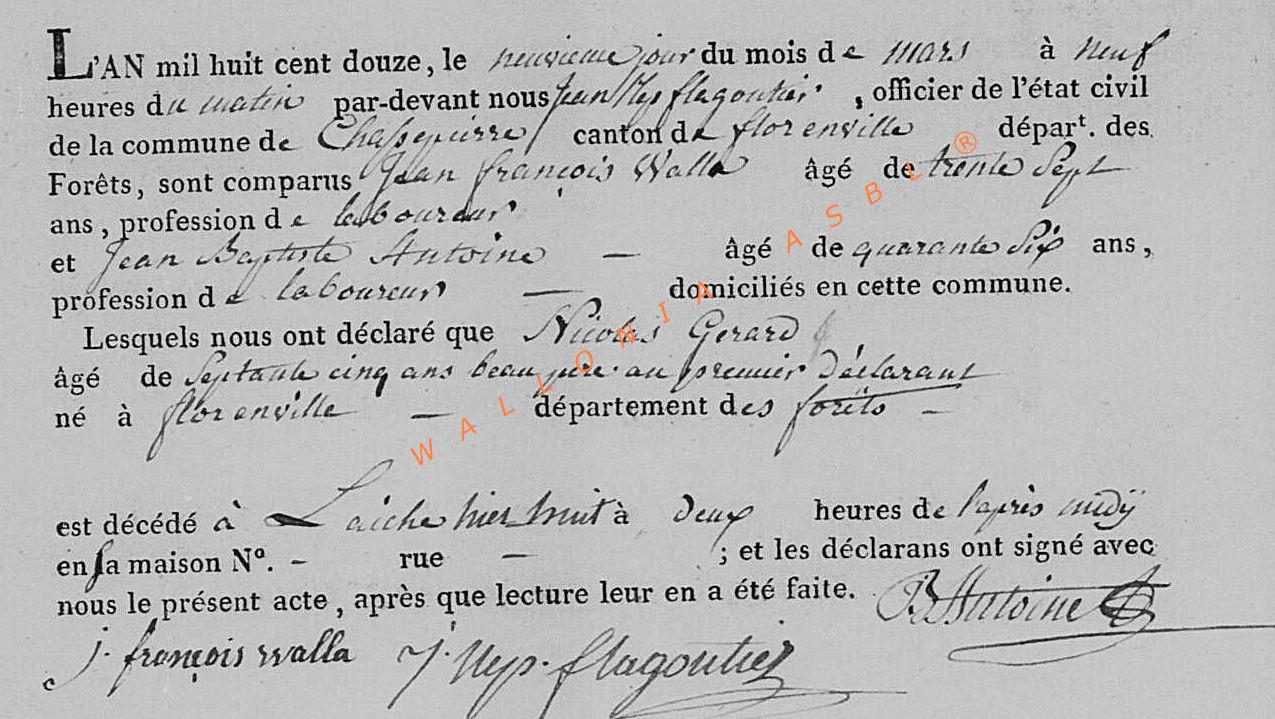 L'AN mil huit cent douze, le neuvieme jour du mois de mars à neuf
heures du matin par-devant nous Jean Nep flagoutier, officier de l'état civil
de la commune de Chassepierre canton de florenville dépar^t. des
Forêts, sont comparus Jean françois Walla âgé de trente Sept
ans, profession de laboureur
et Jean Baptiste Antoine — âgé de quarante Six ans,
profession de laboureur — domiciliés en cette commune.
Lesquels nous ont déclaré que Nicolas Gerard
âgé de Septante cinq ans beau pere au premier Déclarant
né à florenville — département des forêts —
est décédé à Laiche hier huit à deux heures de l'après midÿ
en sa maison N°. - rue — ; et les déclarans ont signé avec
nous le présent acte, après que lecture leur en a été faite. B Antoine
j. françois walla J. Nep. flagoutier
WALLONIA ASBL ®